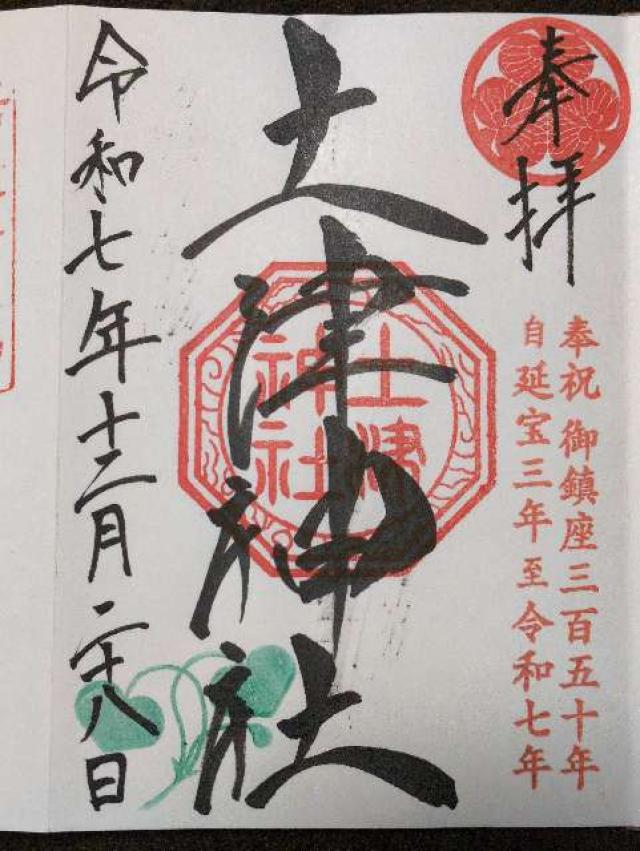 奉拝
奉祝 御鎮座三百五十年
自延宝三年至令和七年
土津神社
土津
神社
令和七年十二月二十八日